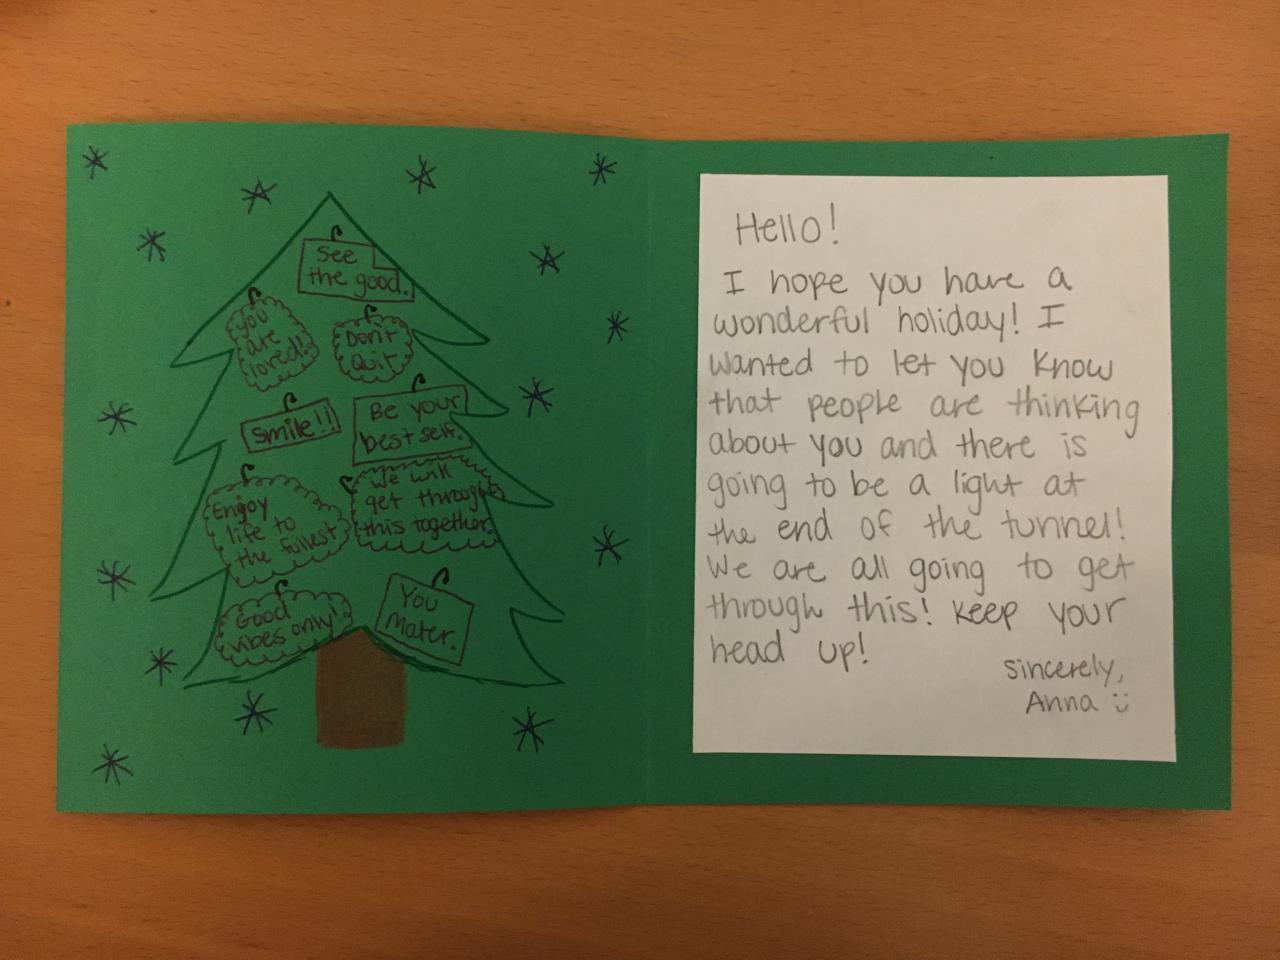 See
the good.
you
are
loved!
Don't
Quit
smile!!
Be your
best self.
Enjoy
life to
the fullest
We will
get through
this together.
Good
vibes only!
You
Mater.
Hello!
I hope you have a
wonderful holiday! I
wanted to let you know
that people are thinking
about you and there is
going to be a light at
the end of the tunnel!
We are all going to get
through this! Keep your
head up!
Sincerely,
Anna :)